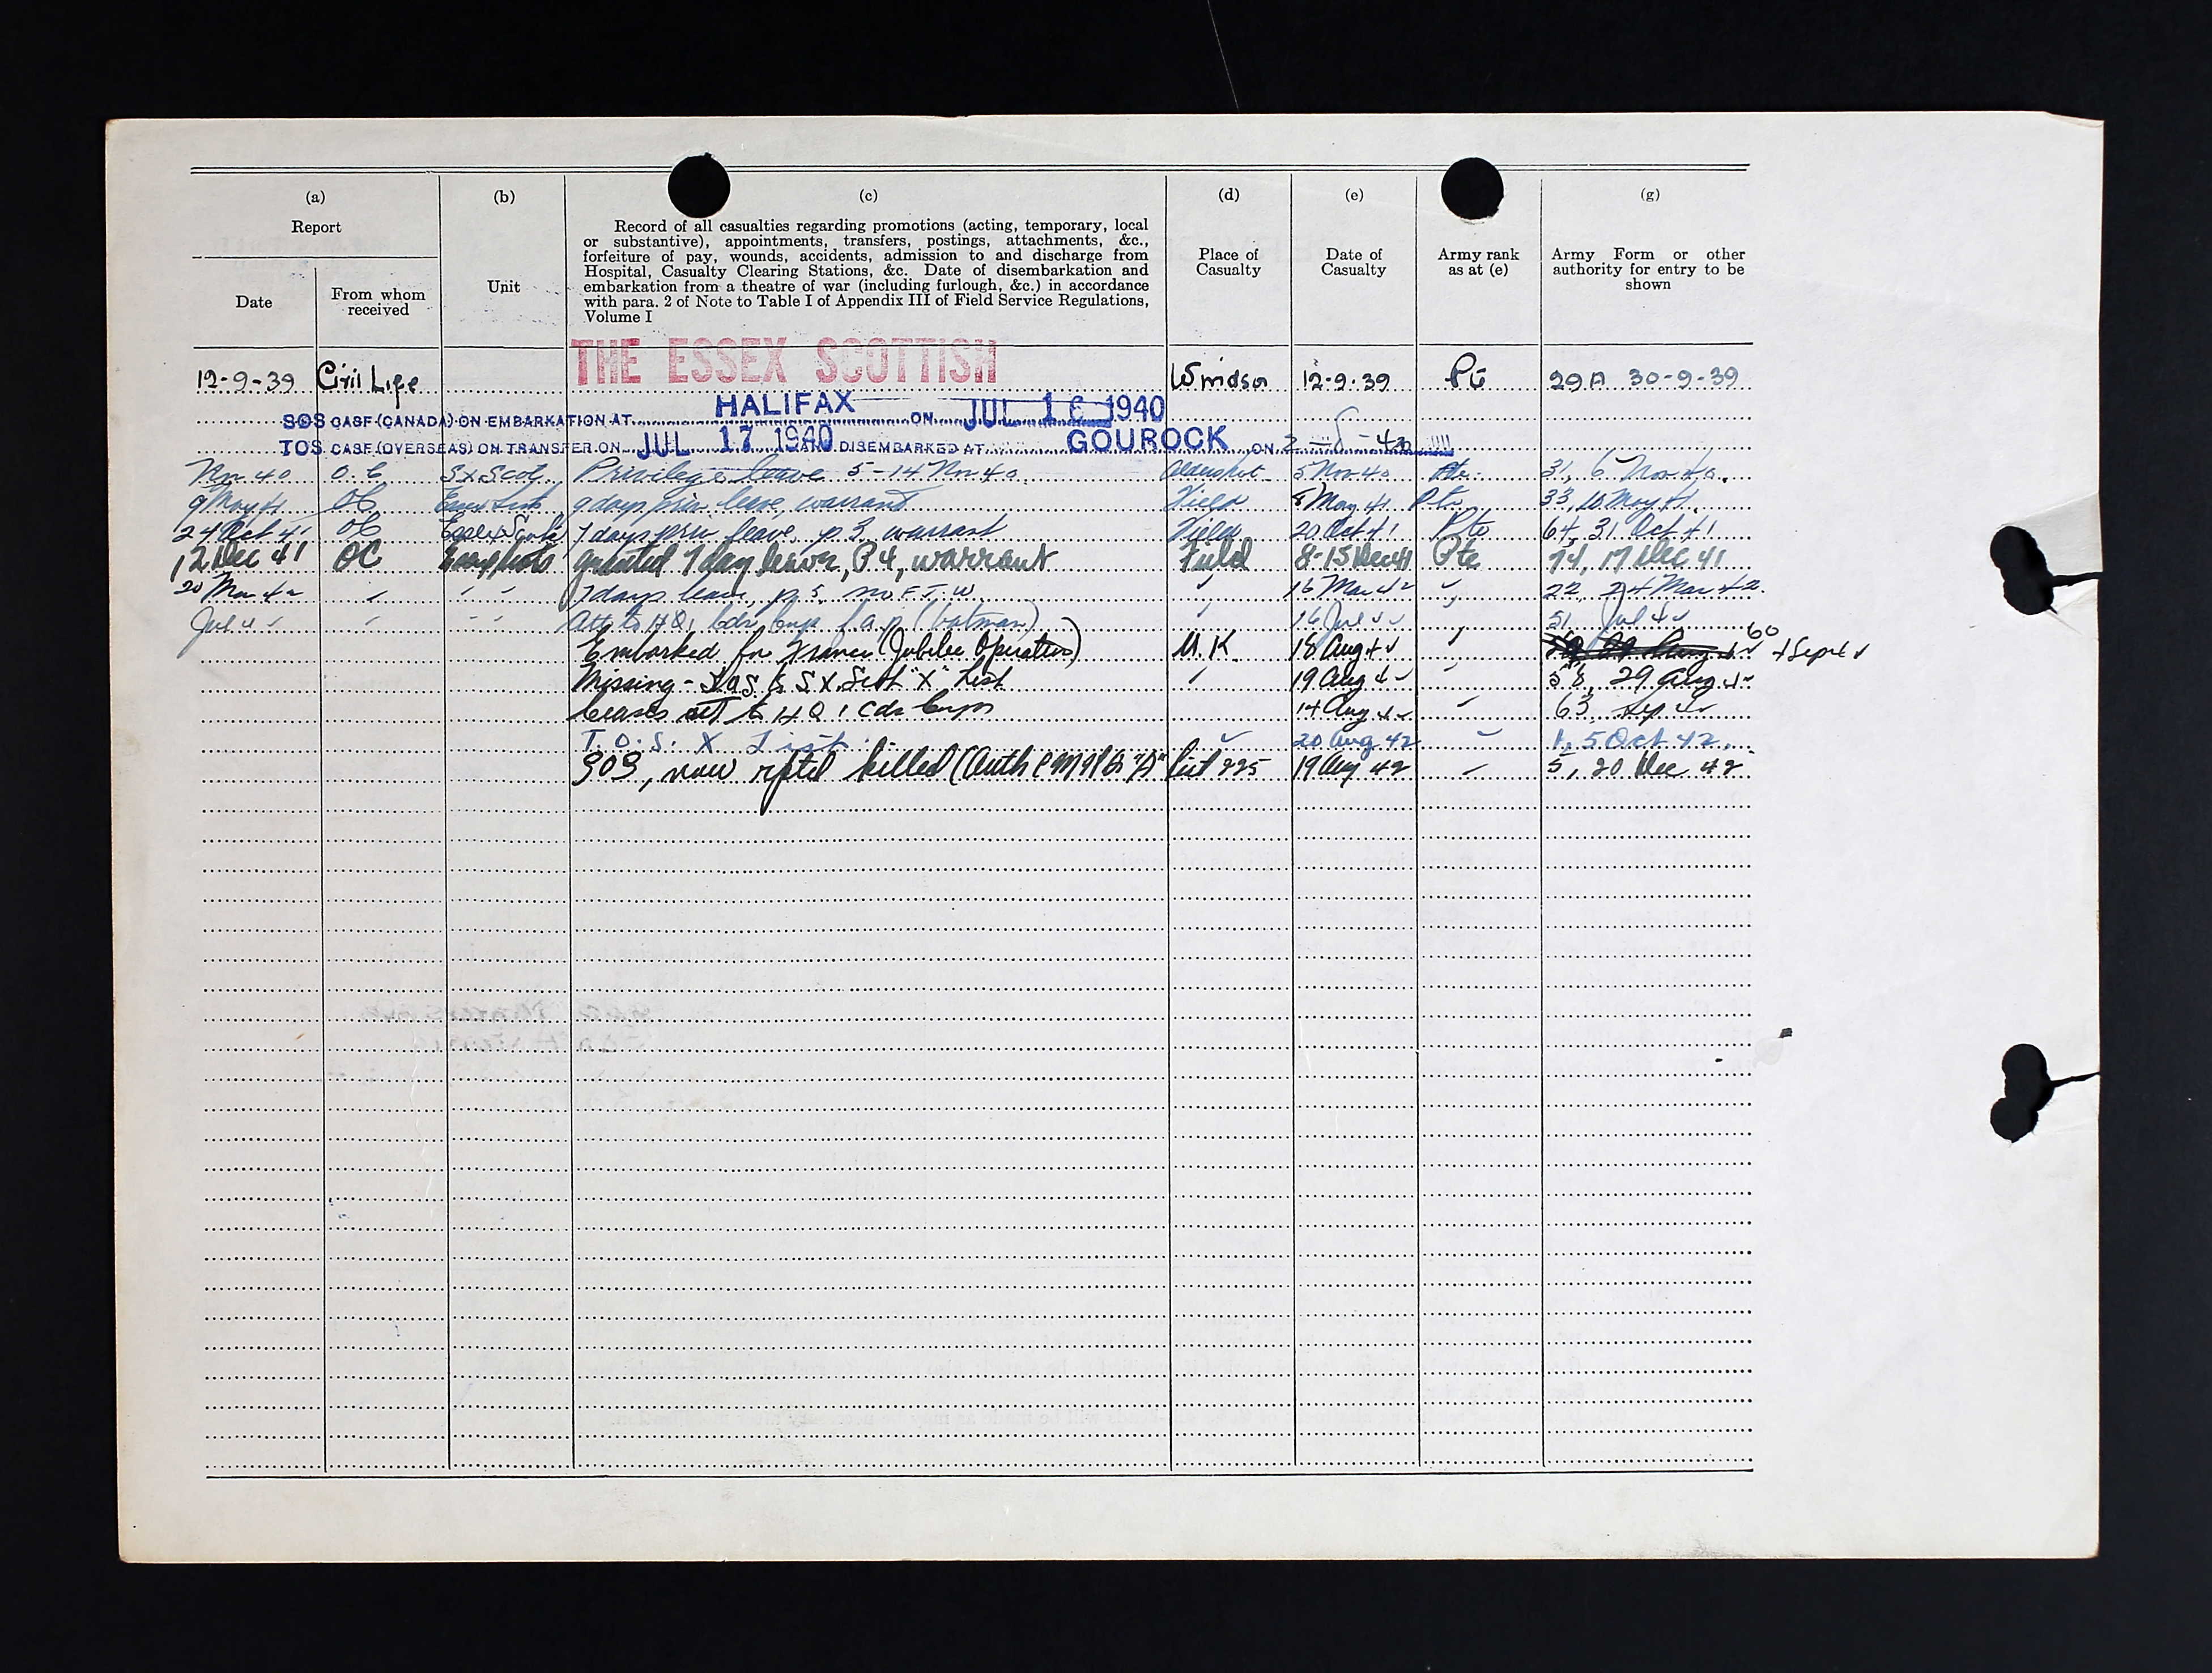 (a) (b) (c) (d) (e) (g)
Report
Record of all casualties regarding promotions (acting, temporary, local
or substantive), appointments, transfers, postings, attachments, &c.,
forfeiture of pay, wounds, accidents, admission to and discharge from
Hospital, Casualty Clearing Stations, &c. Date of disembarkation and
embarkation from a theatre of war (including furlough, &c.) in accordance
with para. 2 of Note to Table I of Appendix III of Field Service Regulations,
Volume I
Date
From whom
received
Unit
Place of
Casualty
Date of
Casualty
Army rank
as at (e)
Army Form or other
authority for entry to be
shown
THE ESSEX SCOTTISH
12-9-39 Civil Life Windsor 12-9-39 Pte 29A 30-9-39
SOS CASF (CANADA) ON EMBARKATION AT HALIFAX ON JUL 16 1940
TOS CASF (OVERSEAS) ON TRANSFER ON JUL 17 1940 AND DISEMBARKED AT GOUROCK ON 2-8-40
Nov 40 O.C Sx Scot Privilege leave 5-14 Nov 40 Aldershot 5 Nov 40 Pte 31, 6 Nov 40.
9 May 41 OC Essex Scot 9 days priv leave, warrant Field 8 May 41 Pte 33, 10 May 41.
24 Oct 41 OC Essex Scot 7 days priv leave, p 3, warrant Field 20 Oct 41 Pte 64, 31 Oct 41
12 Dec 41 OC granted 7 day leave, P4, warrant Field 8-15 Dec 41 Pte 74, 17 Dec 41
20 Mar 42 " " " 7 days leave, p. 5, no F.T.W. " 16 Mar 42 " 22, 24 Mar 42.
Jul 42 " " " Att to HQ 1 Cdn Corps (batman) " 16 Jul 42 " 51, Jul 42
Embarked for France (Jubilee Operation) U.K. 18 Aug 42 " 60 4 Sept 42
Missing - SOS to SX Scot "X" List " 19 Aug 42 " 58, 29 Aug 42
Ceases att to HQ 1 Cdn Corps 14 Aug 42 " 63, Sep 42
T.O.S. X List " 20 Aug 42 " 1, 5 Oct 42.
SOS, now rptd killed (Auth "A" List 225 19 Aug 42 " 5, 20 Dec 42